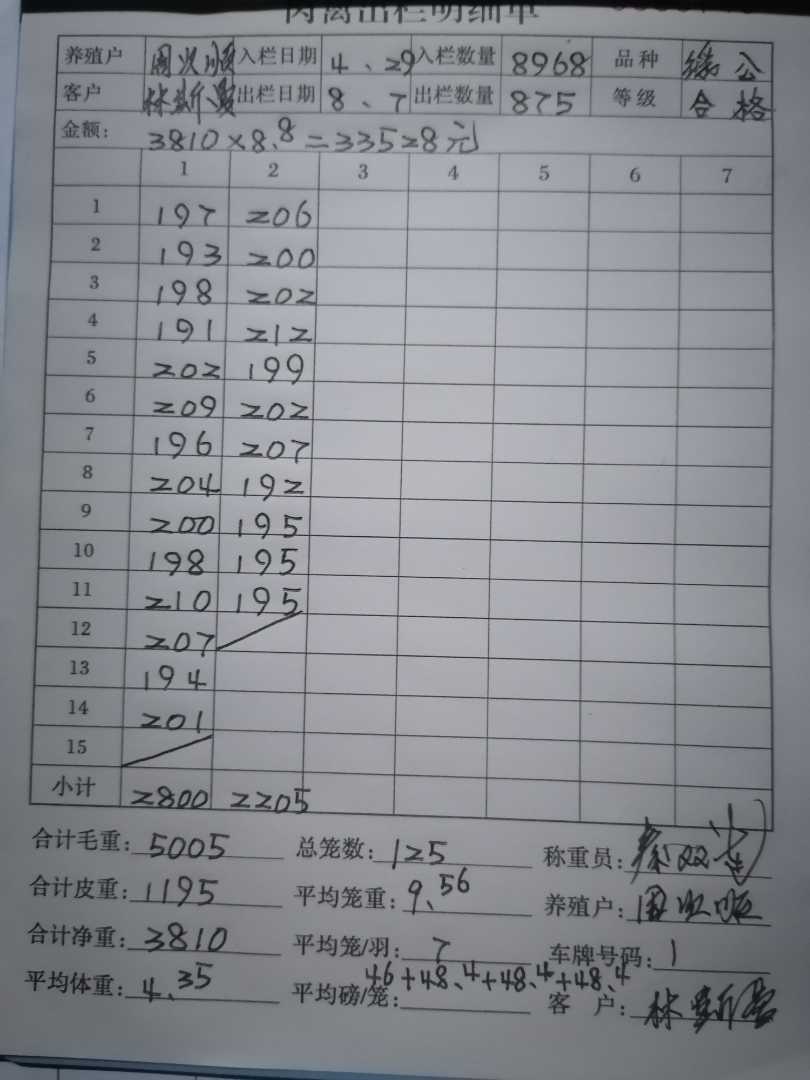 肉禽出栏明细单
养殖户 周次顺 入栏日期 4、29 入栏数量 8968 品种 公
客户 林斯 出栏日期 8、7 出栏数量 875 等级 合格
金额: 3810×8.8=33528元
1 2 3 4 5 6 7
1 197 206
2 193 200
3 198 202
4 191 212
5 202 199
6 209 202
7 196 207
8 204 192
9 200 195
10 198 195
11 210 195
12 207
13 194
14 201
15
小计 2800 2205
合计毛重: 5005 总笼数: 125 称重员:
合计皮重: 1195 平均笼重: 9.56 养殖户: 周次顺
合计净重: 3810 平均笼/羽: 7 车牌号码: 1
46+48.4+48.4+48.4
平均体重: 4.35 平均磅/笼: 客户: 林斯